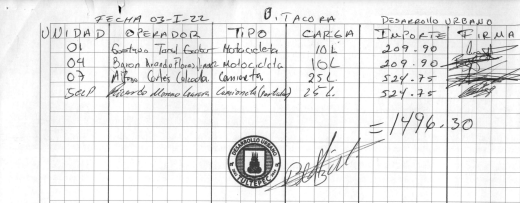 FECHA 03-I-22 BITACORA DESARROLLO URBANO
UNIDAD OPERADOR TIPO CARGA IMPORTE FIRMA
01 Gustavo Motocicleta 10L 209.90
04 Byron Motocicleta 10L 209.90
07 Cortés Camioneta 25L. 524.75
Ricardo Moreno Camioneta 25L. 524.75
=1496.30
DESARROLLO URBANO
TULTEPEC